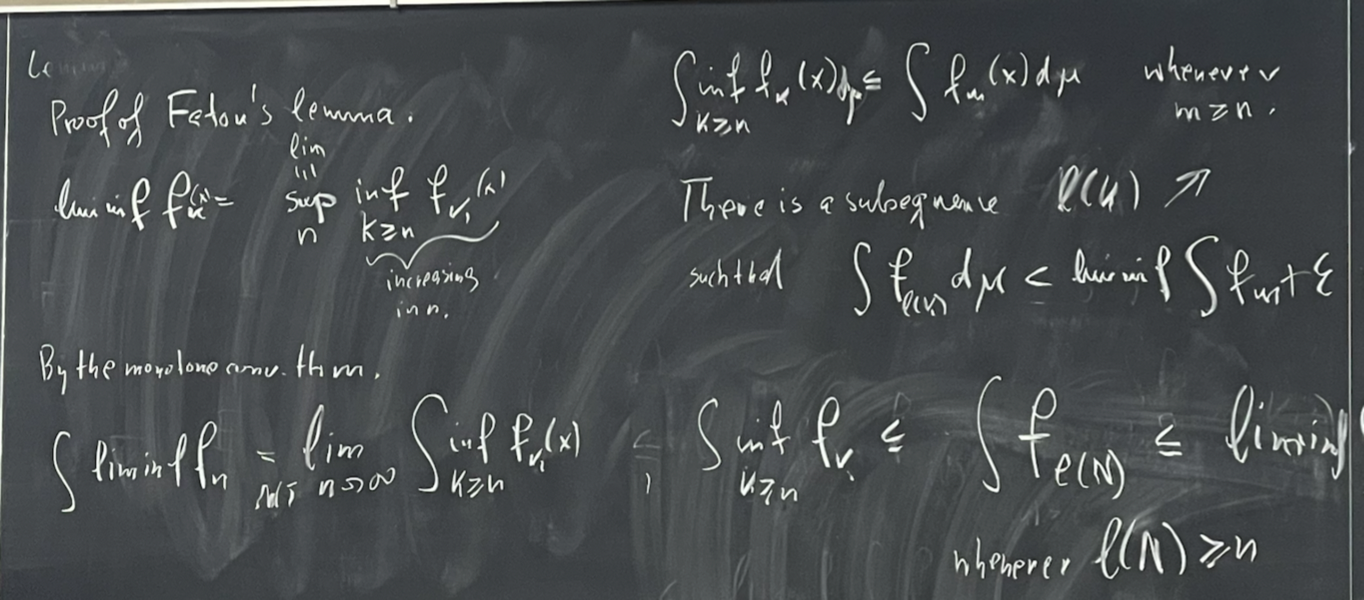 Le
Proof of Fatou's lemma.
lim inf f_k(x) = lim = sup_n inf_{k≥n} f_k(x)
increasing
in n.
By the monotone conv. thm.
∫ lim inf f_n =_{MCT} lim_{n→∞} ∫ inf_{k≥n} f_k(x)
∫ inf_{k≥n} f_k(x) dμ ≤ ∫ f_m(x) dμ whenever
m ≥ n.
There is a subsequence l(n) ↗
such that ∫ f_{l(n)} dμ < lim inf ∫ f_m + ε
∫ inf_{k≥n} f_k ≤ ∫ f_{l(N)} ≤ lim inf
whenever l(N) ≥ n